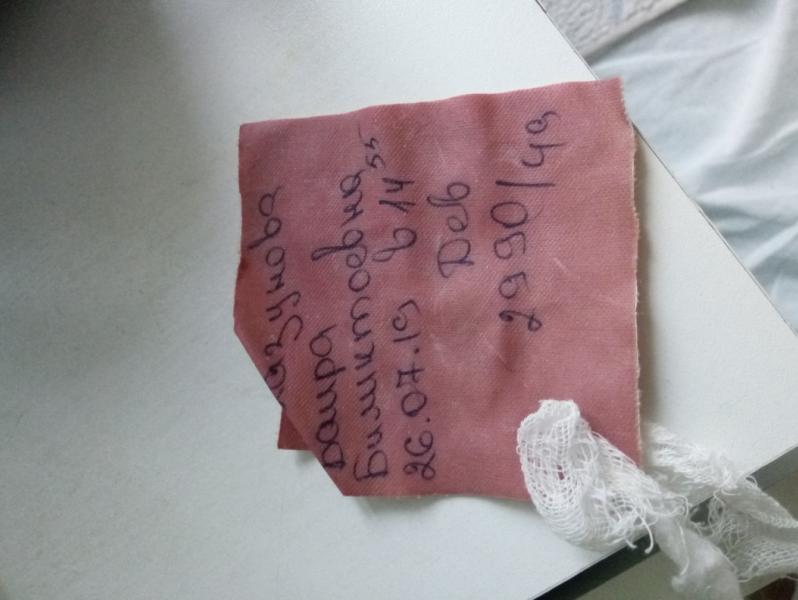 азунова
Баира
Биликтоевна
26.07.19 в 14 55
Дев
2990/49